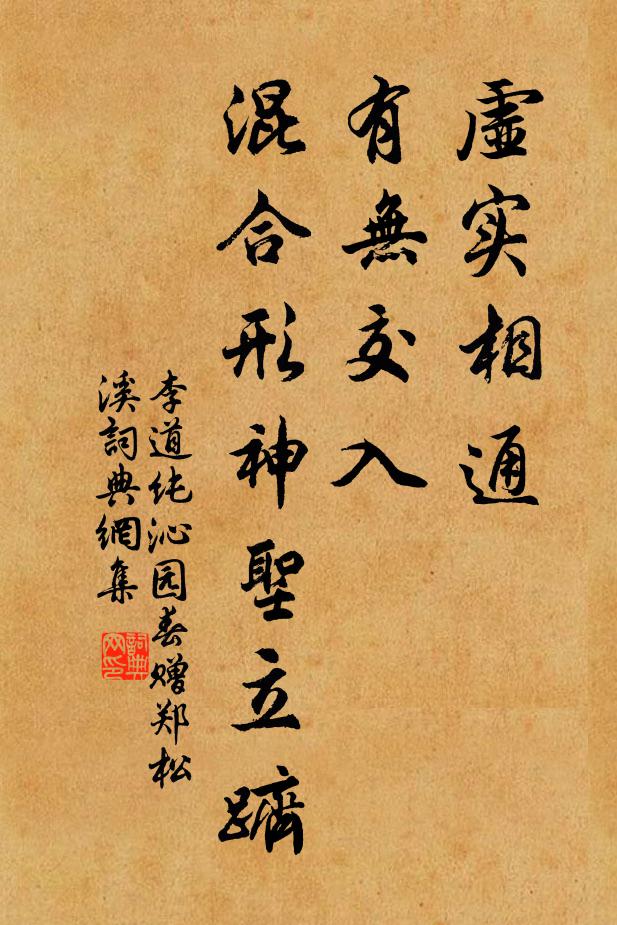 虛实相通
有無交入
混合形神聖立躋
李道纯沁园春赠郑松
溪詞典網集
詞典网印